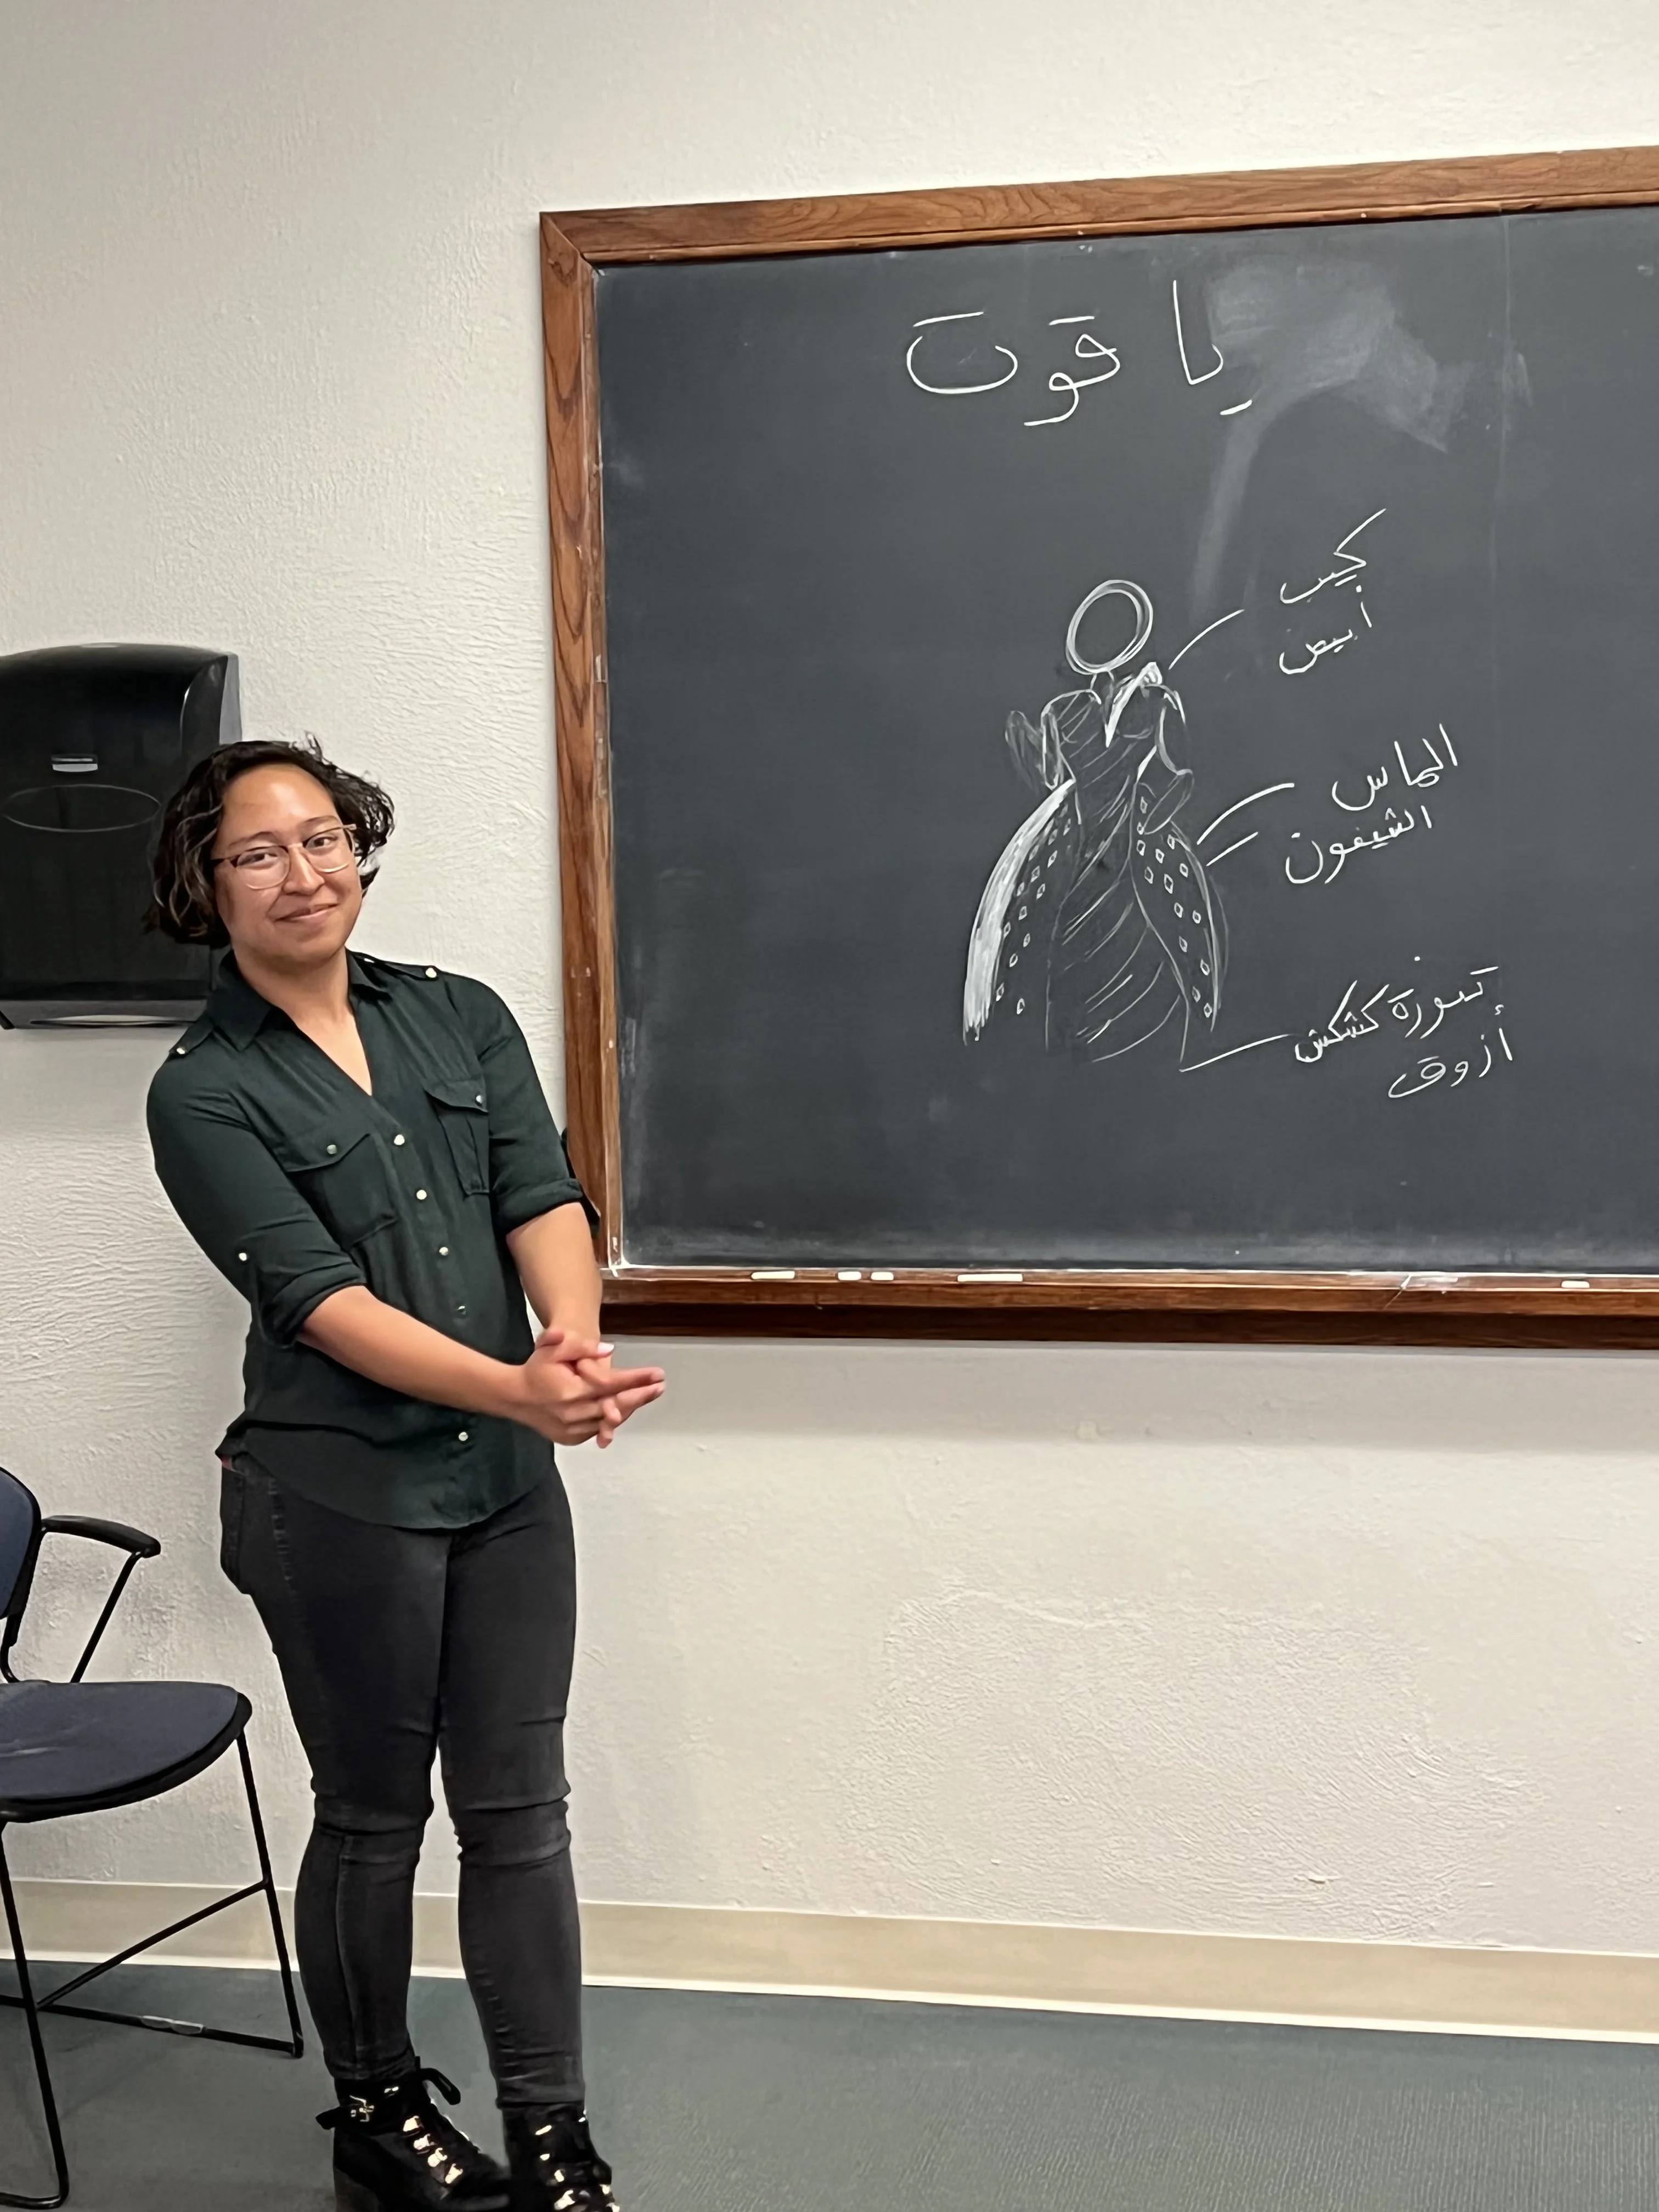 ياقوت
أبيض
الماس
الشيفون
تنورة كشكش
أزوق